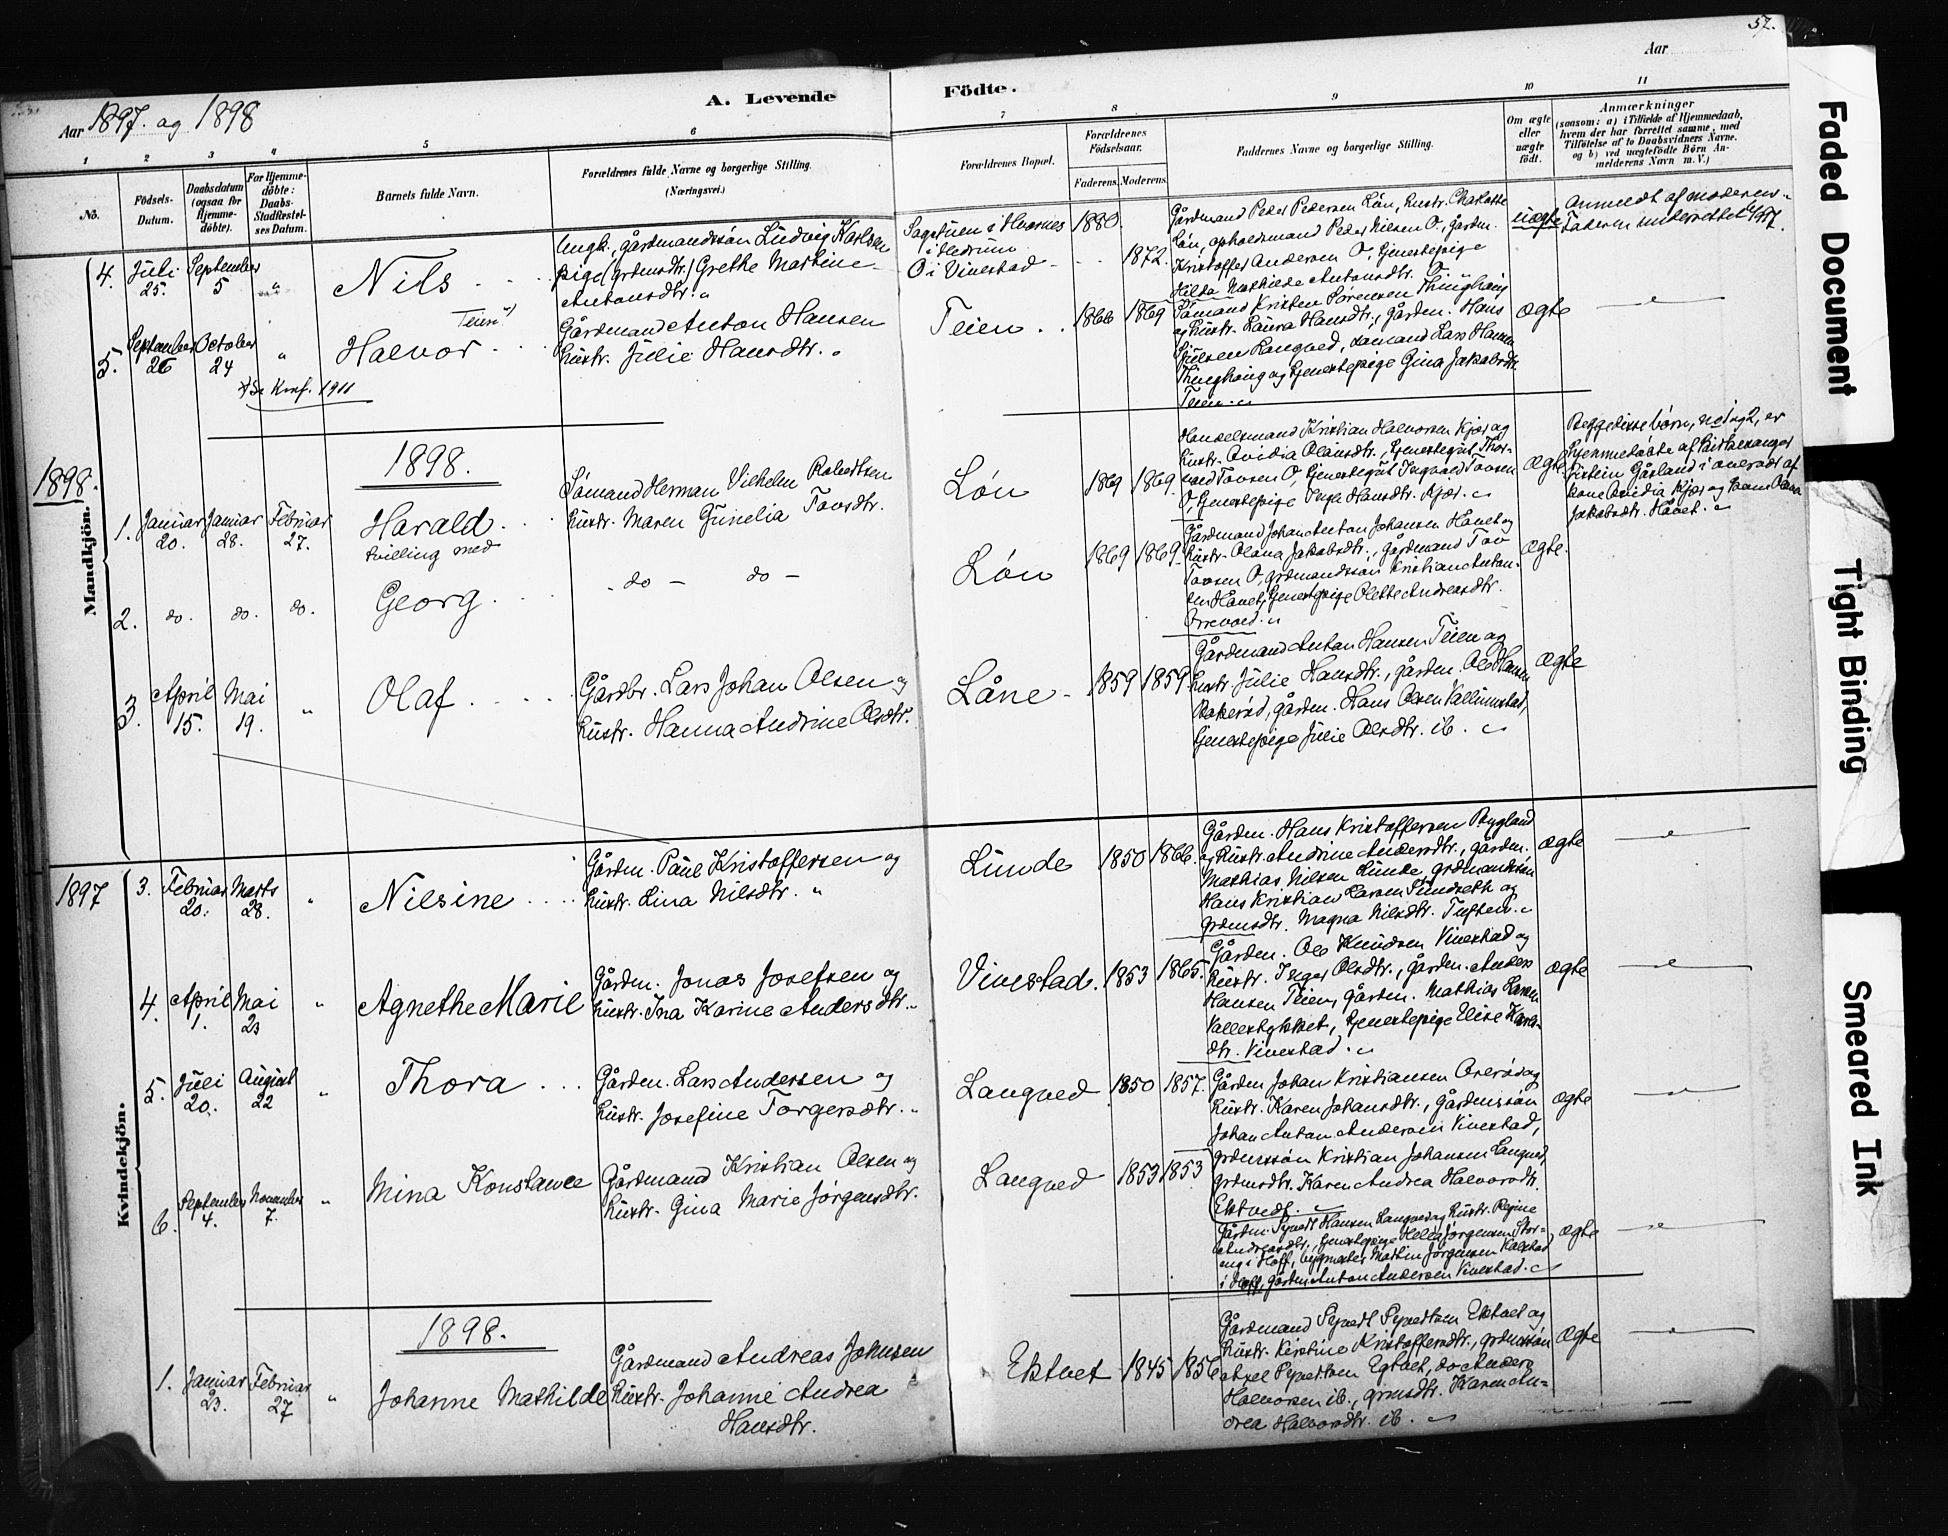 57.
Aar 1897. og 1898
A. Levende Födte.
Aar
1 2 3 4 5 6 7 8 9 10 11
No.
Födsels-Datum.
Daabsdatum (ogsaa for Hjemme-döbte).
For Hjemme-döbte: Daabs-Stadfæstel-ses Datum.
Barnets fulde Navn.
Forældrenes fulde Navne og borgerlige Stilling.
(Næringsvei.)
Forældrenes Bopæl.
Forældrenes Födselsaar.
Faderens. Moderens.
Faddernes Navne og borgerlige Stilling.
Om ægte eller uægte födt.
Anmærkninger
(saasom: a) i Tilfælde af Hjemmedaab, hvem der har forrettet samme, med Tilföielse af to Daabsvidners Navne, og b) ved uægtefödte Börn An-melderens Navn m. V.)
Mandkjön.
4. Juli 25. September 5 " Nils
Ungk., gårdmandssøn Ludvig Karlsen
pige (grdmsdtr.) Grethe Martine
Antonsdtr. "
i Hedrum
O i Vivestad
1880.
1872.
Gårdmand Peder Pedersen Løn, hustr. Charlotte
Løn, opholdsmand Peder Nilsen O, gårdm.
Kristoffer Andersen O, tjenestepige
Hilda Mathilde Antonsdtr. O.
uægte
Anmeldt af moderen.
Faderen underrettet
5. September 26 October 24 " Halvor Teien
Gårdmand Anton Hansen
hustr. Julie Hansdtr. "
Teien 1866 1869
Sømand Kristen Sørensen Thinghaug
og hustr. Laura Hansdtr., gårdm. Hans
Langved, sømand Lars Hansen
Thinghaug og tjenestepige Gina Jakobsdtr.
Teien.
ægte
Se Konf. 1911
1898.
1898.
1. Januar 20. Januar 28. Februar 27. Harald
tvilling med
Sømand Herman Vilhelm Robertsen
hustr. Maren Gunelia Tovsdtr.
Løn 1869 1869.
Handelsmand Kristian Halvorsen Kjær og
hustr. Ovidia Olausdtr., tjenestegut Thor-
vald Tovsen O, tjenestegut Ingvald Tovsen
O, tjenestepige Inga Hansdtr. Kjær.
ægte.
Begge disse børn, no 1 og 2, er
hjemmedøbte af Kirkesanger
Eistein Gåsland i overvær af
kone Ovidia Kjær og kone Olava
Jakobsdtr. Håvet.
2. do. do. do. Georg.
do - do -
Løn 1869 1869
Gårdmand Johan Anton Johansen Håvet og
hustr. Olava Jakobsdtr., gårdmand Tov
Tovsen O, grdmandssøn Kristian Anton-
sen Håvet, tjenestepige Olette Andreasdtr.
Orrevold.
ægte.
3. April 15. Mai 19. " Olaf
Gårdbr. Lars Johan Olsen og
hustr. Hanna Andrine Olsdtr.
Låne 1859 1859.
Gårdmand Anton Hansen Teien og
hustr. Julie Hansdtr., gårdm. Ole Hansen
Bakerød, gårdm. Hans Olsen Vallumstad,
tjenestepige Julie Olsdtr. ib.
ægte
1897
Kvindekjön.
3. Februar 20. Marts 28. " Nilsine
Gårdm. Paul Kristoffersen og
hustr. Lina Nilsdtr. "
Lunde 1850 1866.
Gårdm. Hans Kristoffersen Bugland
og hustr. Andrine Andersdtr., gårdm.
Mathias Nilsen Lunde, grdmandssøn
Hans Kristian Larsen Sundseth og
grdmsdtr. Magna Nilsdtr. Tuften.
ægte
4. April 1. Mai 23 " Agnethe Marie
Gårdm. Jonas Josefsen og
hustr. Ina Karine Andersdtr.
Vivestad. 1853 1865.
Gårdm. Ole Knudsen Vivestad og
hustr. Inger Olsdtr., gårdm. Anders
Hansen Teien, gårdm. Mathias Larsen
Vallestykket, tjenestepige Elise Karls-
dtr. Vivestad.
ægte
5. Juli 20. August 22 " Thora
Gårdm. Lars Andersen og
hustr. Josefine Torgersdtr.
Langved 1850 1857.
Gårdm. Johan Kristiansen Overød og
hustr. Karen Johansdtr., gårdmssøn
Johan Anton Andersen Vivestad,
grdmssøn Kristian Johansen Langved,
grdmsdtr. Karen Andrea Halvorsdtr.
Ektvedt.
ægte
6. September 4. November 7. " Mina Konstance
Gårdmand Kristian Olsen og
hustr. Gina Marie Jørgensdtr.
Langved 1853 1853
Gårdm. Syvert Hansen Langved og hustr. Regine
Andreasdtr., tjenestepige Helga Jørgensen Stor-
eng i Hoff, bygmester Martin Jørgensen Kalstad
i Hoff, gårdm. Anton Andersen Vivestad.
ægte
1898.
1. Januar 23. Februar 27 " Johanne Mathilde
Gårdmand Andreas Johnsen
hustr. Johanne Andrea
Hansdtr.
Ektvet 1845 1856
Gårdmand Syvert Syvertsen Ektvet og
hustr. Kirstine Kristoffersdtr., grdmssøn
Axel Syvertsen Egtvet, do Anders
Halvorsen ib., grmsdtr. Karen An-
drea Halvorsdtr. ib.
ægte
Faded Document
Tight Binding
Smeared Ink